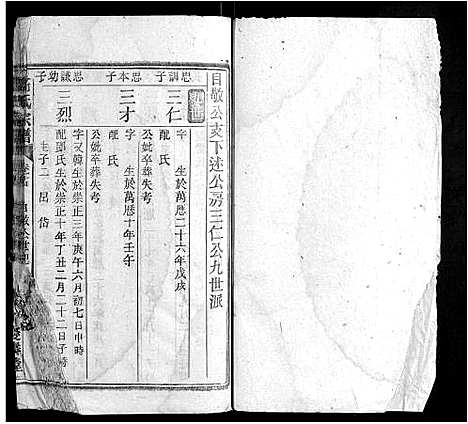 自敬公支下述公房三仁公九世派
九世
思訓子
三仁
字　生於萬厯二十六年戊戌
配氏
公妣卒葬失考
思本子
三才
字　生於萬厯十年壬午
配氏
公妣卒葬失考
思謙幼子
三烈
字又韓生於崇正三年庚午六月初七日申時
配邱氏生於崇正十年丁丑二月二十二日子時
生子二　呂岱
氏宗譜